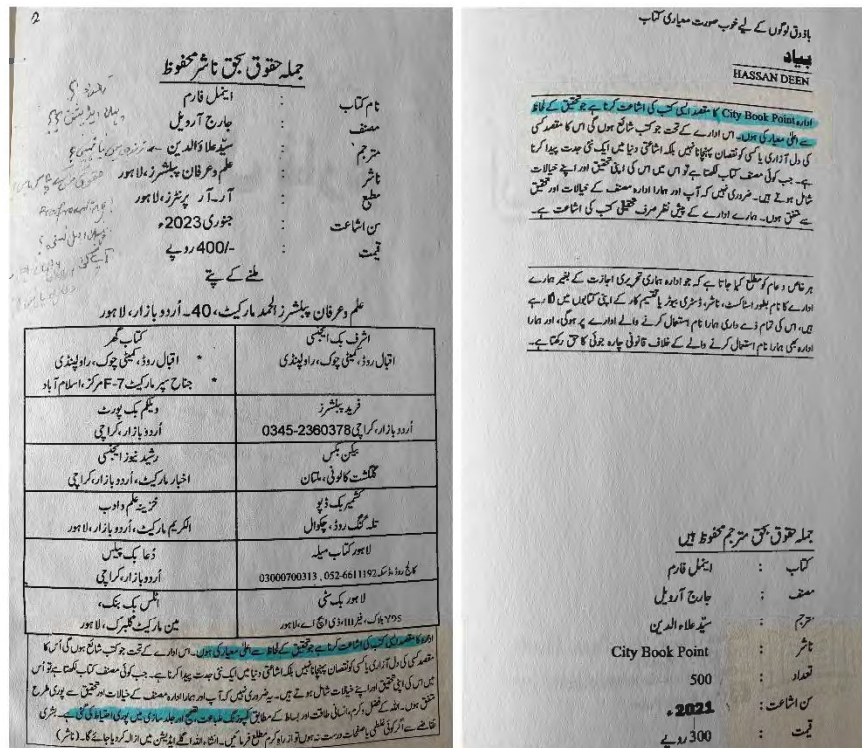 2
جملہ حقوق بحق ناشر محفوظ
نام کتاب : اینمل فارم
مصنف : جارج آرویل
مترجم : سیّد علاؤالدین
ناشر : علم و عرفان پبلشرز، لاہور
مطبع : آر۔ آر پرنٹرز، لاہور
سن اشاعت : جنوری 2023ء
قیمت : 400/- روپے
ملنے کے پتے
علم و عرفان پبلشرز الحمد مارکیٹ، 40۔ اُردو بازار، لاہور
کتاب گھر
* اقبال روڈ، کمیٹی چوک، راولپنڈی
* جناح سپر مارکیٹ F-7 مرکز، اسلام آباد
اشرف بک ایجنسی
اقبال روڈ، کمیٹی چوک، راولپنڈی
ویلکم بک پورٹ
اُردو بازار، کراچی
فرید پبلشرز
اُردو بازار، کراچی 0345-2360378
رشید نیوز ایجنسی
اخبار مارکیٹ، اُردو بازار، کراچی
بیکن بکس
گلگشت کالونی، ملتان
خزینہ علم و ادب
الکریم مارکیٹ، اُردو بازار، لاہور
کشمیر بک ڈپو
تلہ گنگ روڈ، چکوال
دُعا بک پیلس
اُردو بازار، کراچی
لاہور کتاب میلہ
کالج روڈ، ڈسکہ 052-6611192 , 03000700313
اٹلس بک بنک،
مین مارکیٹ گلبرگ، لاہور
لاہور بک سٹی
Y95 بلاک، فیز III، ڈی ایچ اے، لاہور
ادارہ کا مقصد ایسی کتب کی اشاعت کرنا ہے جو تحقیق کے لحاظ سے اعلیٰ معیار کی ہوں۔ اس ادارے کے تحت جو کتب شائع ہوں گی اُس کا
مقصد کسی کی دل آزاری یا کسی کو نقصان پہنچانا نہیں بلکہ اشاعتی دنیا میں ایک نئی جدت پیدا کرنا ہے۔ جب کوئی مصنف کتاب لکھتا ہے تو اُس
میں اس کی اپنی تحقیق اور اپنے خیالات شامل ہوتے ہیں۔ یہ ضروری نہیں کہ آپ اور ہمارا ادارہ مصنف کے خیالات اور تحقیق سے پوری طرح
متفق ہوں۔ اللہ کے فضل و کرم، انسانی طاقت اور بساط کے مطابق کمپوزنگ طباعت، تصحیح اور جلد سازی میں پوری احتیاط کی گئی ہے۔ بشری
تقاضے سے اگر کوئی غلطی یا صفحات درست نہ ہوں تو از راہ کرم مطلع فرمائیں۔ انشاء اللہ اگلے ایڈیشن میں ازالہ کر دیا جائے گا۔ (ناشر)
باذوق لوگوں کے لیے خوب صورت معیاری کتاب
بیاد
HASSAN DEEN
ادارہ City Book Point کا مقصد ایسی کتب کی اشاعت کرنا ہے جو تحقیق کے لحاظ
سے اعلیٰ معیار کی ہوں۔ اس ادارے کے تحت جو کتب شائع ہوں گی اس کا مقصد کسی
کی دل آزاری یا کسی کو نقصان پہنچانا نہیں بلکہ اشاعتی دنیا میں ایک نئی جدت پیدا کرنا
ہے۔ جب کوئی مصنف کتاب لکھتا ہے تو اس میں اس کی اپنی تحقیق اور اپنے خیالات
شامل ہوتے ہیں۔ ضروری نہیں کہ آپ اور ہمارا ادارہ مصنف کے خیالات اور تحقیق
سے متفق ہوں۔ ہمارے ادارے کے پیش نظر صرف تحقیقی کتب کی اشاعت ہے۔
ہر خاص و عام کو مطلع کیا جاتا ہے کہ جو ادارہ ہماری تحریری اجازت کے بغیر ہمارے
ادارے کا نام بطور اسٹاکسٹ، ناشر، ڈسٹری بیوٹر یا تقسیم کار کے اپنی کتابوں میں لگا رہے
ہیں، اس کی تمام ذمے داری ہمارا نام استعمال کرنے والے ادارے پر ہوگی، اور ہمارا
ادارہ بھی ہمارا نام استعمال کرنے والے کے خلاف قانونی چارہ جوئی کا حق رکھتا ہے۔
جملہ حقوق بحق مترجم محفوظ ہیں
کتاب : اینمل فارم
مصنف : جارج آرویل
مترجم : سیّد علاء الدین
ناشر : City Book Point
تعداد : 500
سن اشاعت : 2021ء
قیمت : 300 روپے